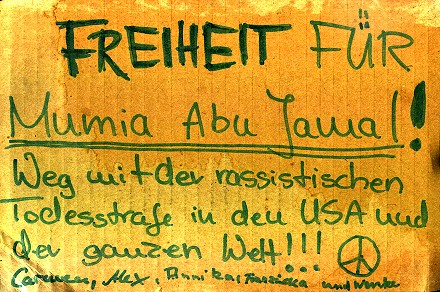 FREIHEIT FÜR
Mumia Abu Jamal!
Weg mit der rassistischen
Todesstrafe in den USA und
der ganzen Welt!!!
Carmen, Alex, Annika, Franziska und Wenke